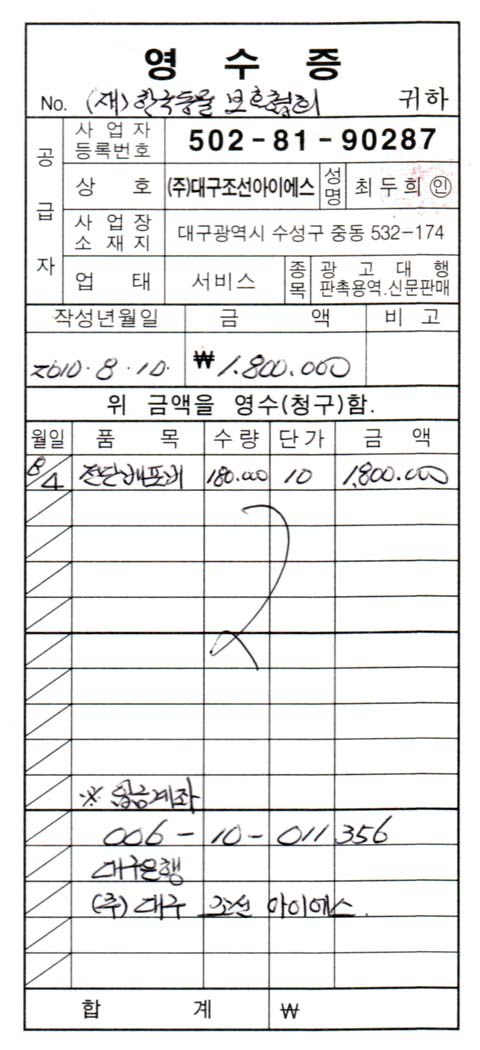 영 수 증
No. (재) 한국동물 보호협회 귀하
공급자
사업자등록번호 502-81-90287
상 호 (주)대구조선아이에스 성명 최두희 ㊞
사업장소재지 대구광역시 수성구 중동 532-174
업 태 서비스 종목 광고대행 판촉용역.신문판매
작성년월일 금 액 비 고
2010. 8. 10. ₩ 1.800.000
위 금액을 영수(청구)함.
월일 품 목 수량 단가 금 액
8/4 전단배포비 180.000 10 1,800.000
※ 입금계좌
006-10-011356
대구은행
(주) 대구 조선 아이에스.
합 계 ₩